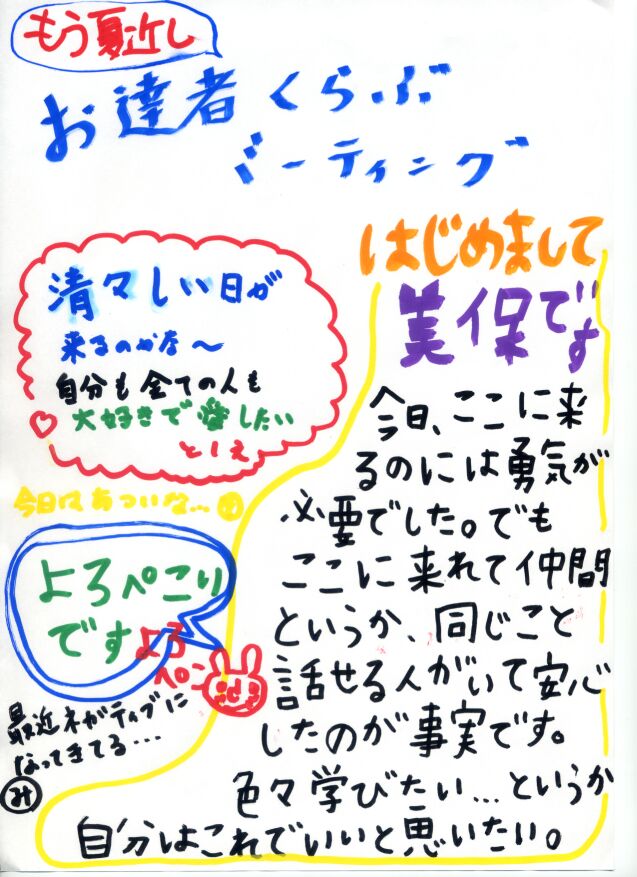 もう夏近し
お達者くらぶ
ミーティング
はじめまして
美保です
清々しい日が
来るのかな〜
自分も全ての人も
大好きで愛したい
としえ
今日はあついな…
よろぺこり
です
よろ
ペこ
最近ネガティブに
なってきてる…
み
今日、ここに来
るのには勇気が
必要でした。でも
ここに来れて仲間
というか、同じこと
話せる人がいて安心
したのが事実です。
色々学びたい…というか
自分はこれでいいと思いたい。